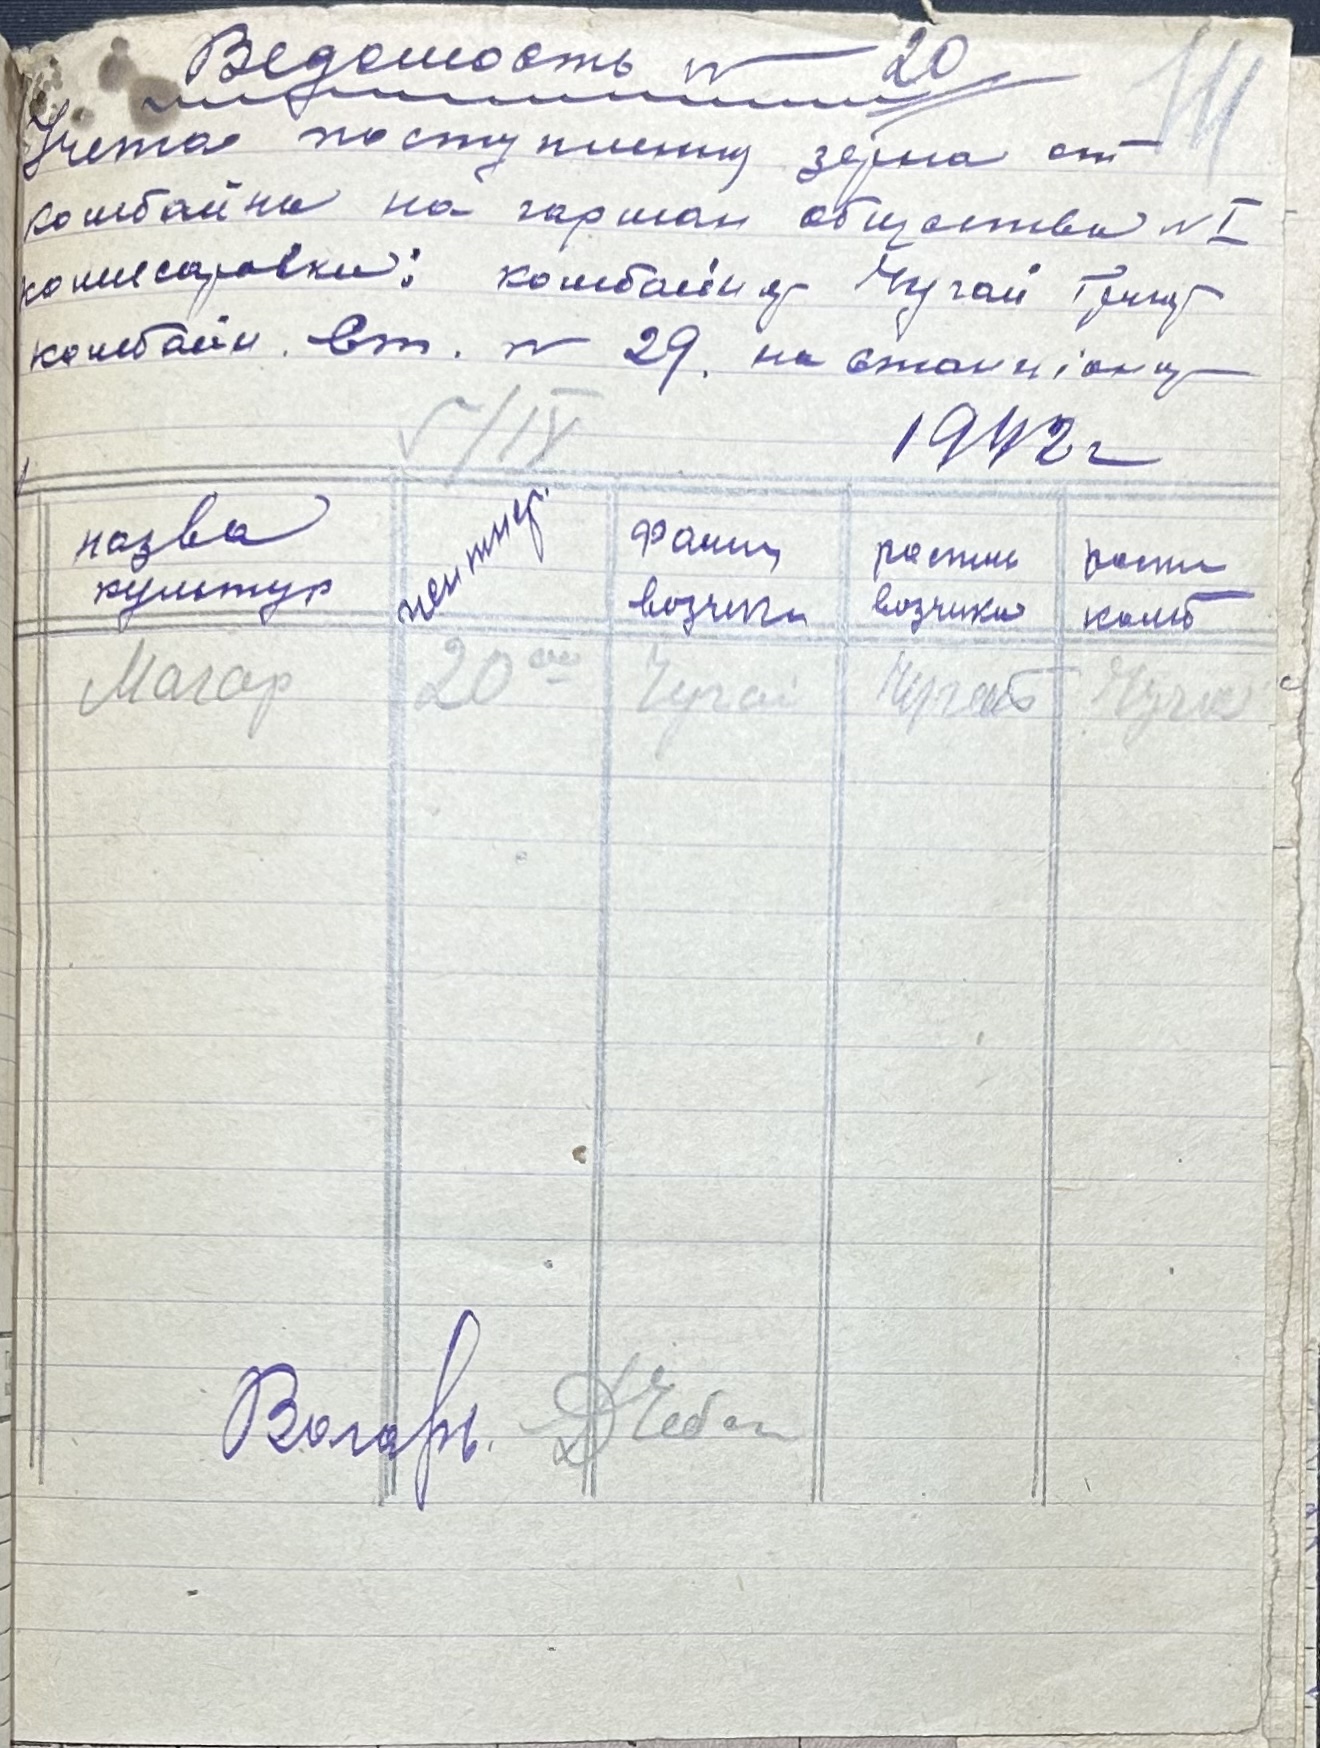 Ведомость № 20
Учета поступлению зерна от
комбайна на гарман общества № I
комисаровка: комбайну Чугай
комбайн. вт. № 29. на станціону
5/IX
1942 г
назва культур
центнер.
Фамил возчика
распис возчика
распи комб
Магар 20 Чугай Чугай
Вагарь. Д Чебан